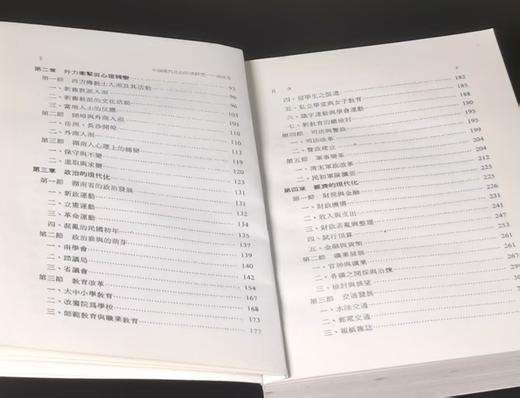 2 中國現代化的區域研究——湖南省
第二章 外力衝擊與心理轉變 93
第一節 西方傳教士入湘及其活動 93
一、新舊教派的入湘 96
二、新舊教派的文化活動 101
三、當地人士的反應 103
第二節 開埠與外商入湘 110
一、岳州、長沙開埠 111
二、外商入湘
第三節 湖南人心理上的轉變 119
一、保守與不變
二、進取與求變 127
第三章 政治的現代化 131
第一節 湖南省的政治發展 131
一、新政運動 132
二、立憲運動
三、革命運動 134
四、混亂的民國初年 137
第二節 政治參與的萌芽
一、南學會
二、諮議局
三、省議會 142
第三節 教育改革 154
一、大中小學教育
二、改書院爲學校 168
三、師範教育與職業教育 173
177
目次
四、留學生之派遣 182
五、私立學堂與女子教育 185
六、識字運動與學會運動 187
七、新教育的總檢討 190
第四節 司法與警政
一、司法改革
二、警政建立 199
第五節 軍事變革 204
一、清末軍政改革
二、民初軍隊議裁 212
第四章 經濟的現代化
第一節 財稅與金融 225
一、財政機構
二、收入與支出 231
三、財政紊亂與整理 247
四、試行預算 251
五、金融與貨幣
第二節 礦業發展 261
一、官紳與礦業 267
二、各礦之開採與冶煉
三、檢討與展望
第三節 交通發展
一、水陸交通
二、郵電交通
三、報紙雜誌